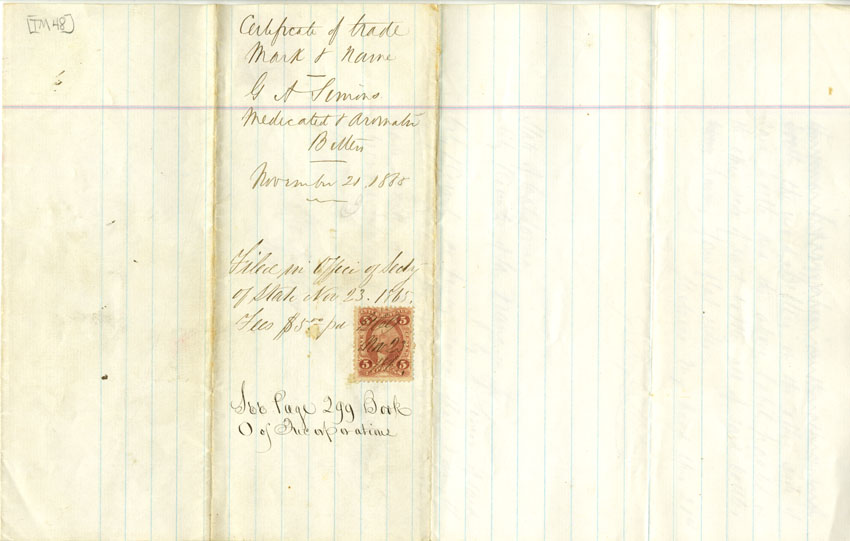 [TM 48]
Certificate of trade
Mark & Name
G A Simons
Medicated & Aromatic
Bitters
November 21, 1865
Filed in Office of Secty
of State Nov 23. 1865.
Fees $5.00 pd
5 5
5 5
See Page 299 Book
O of Incorporations